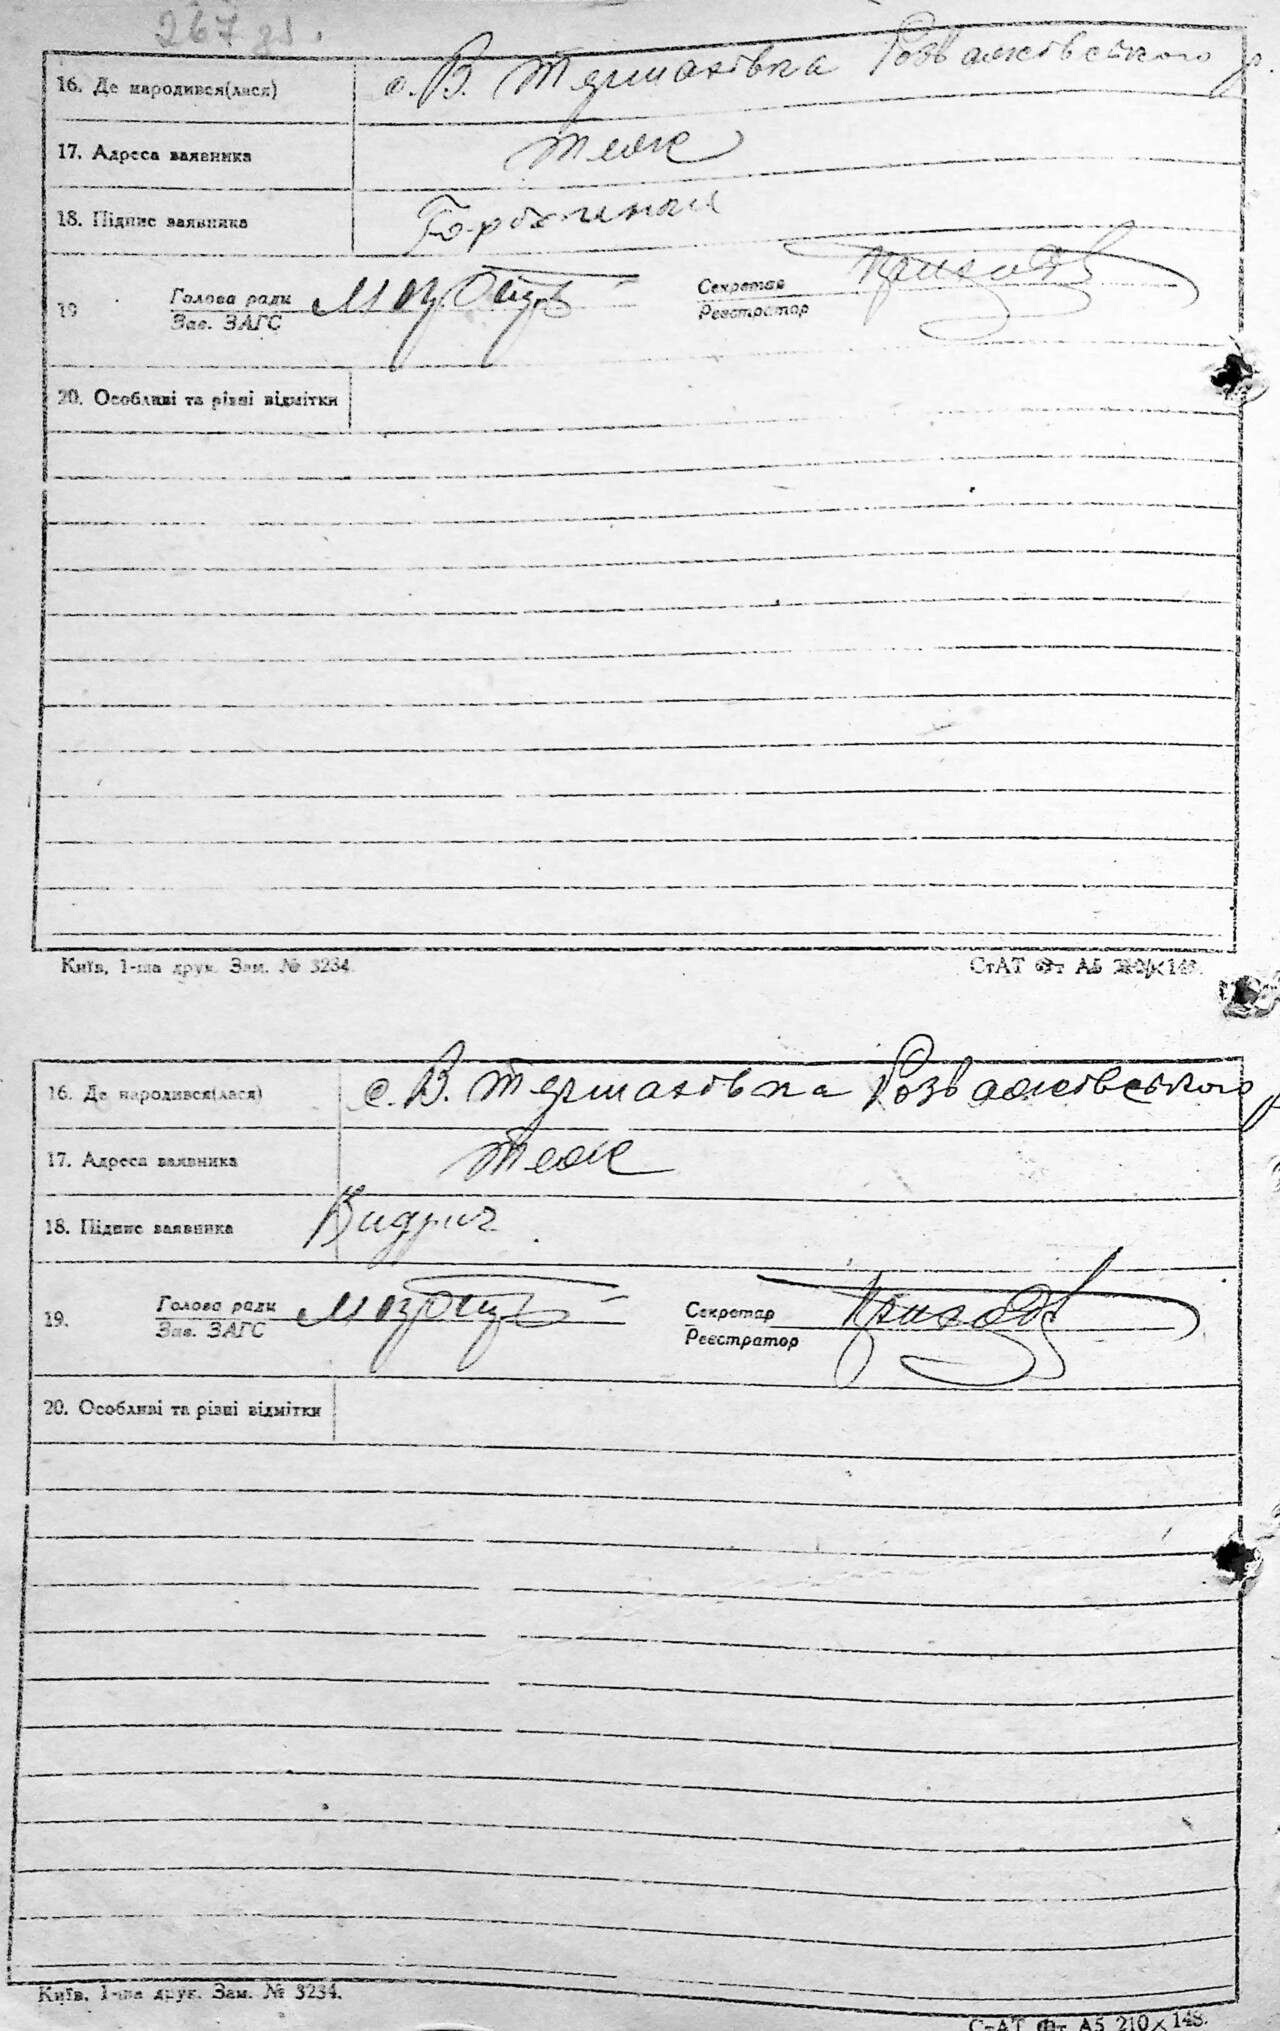 267 зв.
16. Де народився(лася) с. В. Термахівка Розважівського р.
17. Адреса заявника теж
18. Підпис заявника
19 Голова ради Секретар
Зав. ЗАГС Реєстратор
20. Особливі та різні відмітки
Київ, 1-ша друк. Зам. № 3234.
СтАТ Фт А5 210×148.
16. Де народився(лася) с. В. Термахівка Розважівського р
17. Адреса заявника теж
18. Підпис заявника Видрич
19. Голова ради Секретар
Зав. ЗАГС Реєстратор
20. Особливі та різні відмітки
Київ, 1-ша друк. Зам. № 3234.
СтАТ Фт А5 210×148.